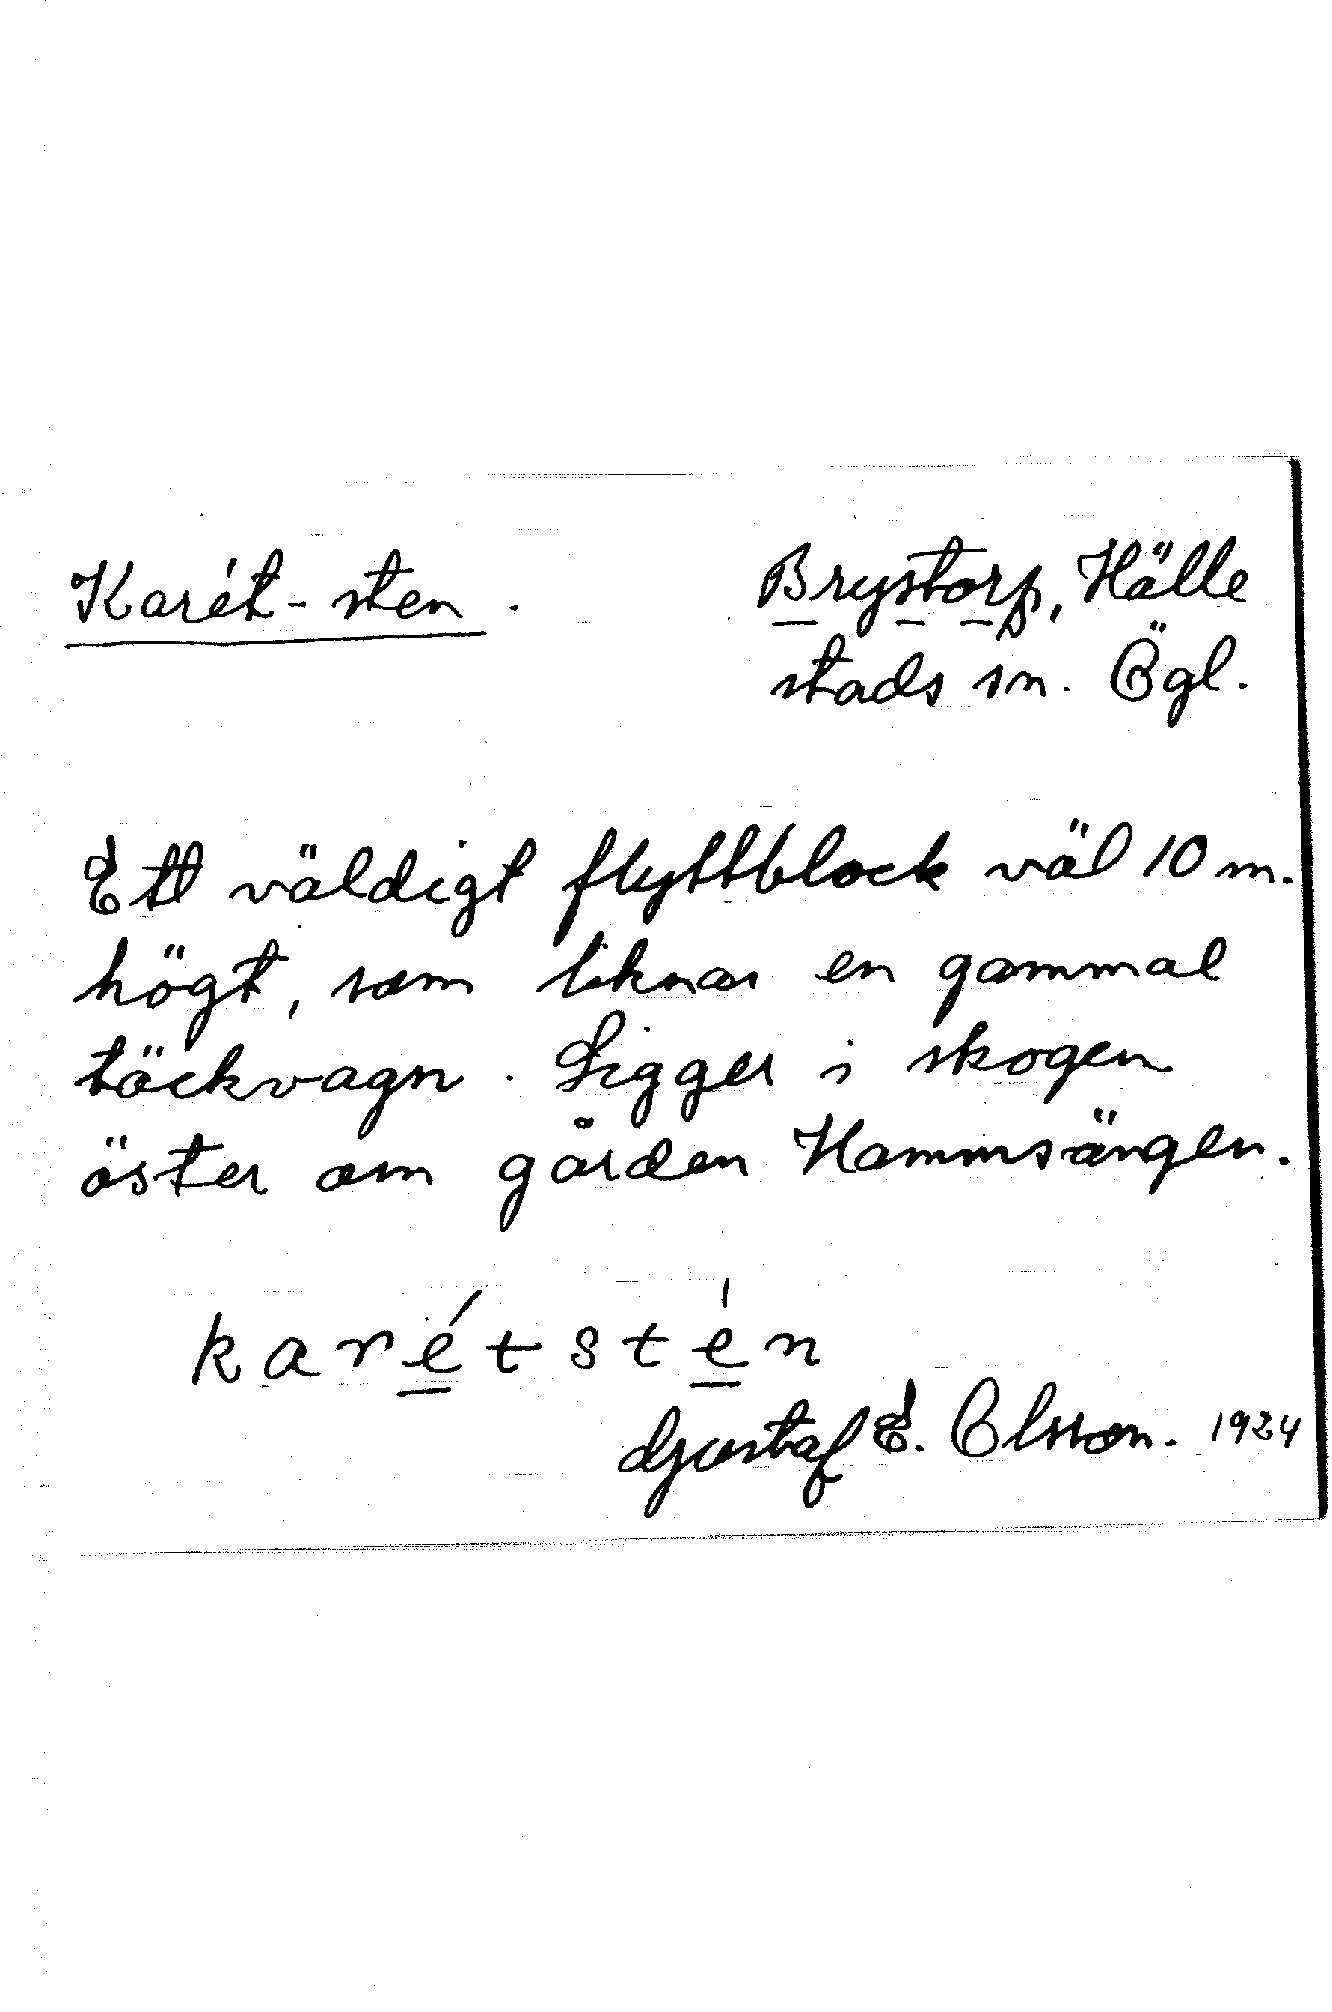 Karét-sten.
Brystorp, Hälle
stads sn. Ögl.
Ett väldigt flyttblock väl 10 m.
högt, som liknar en gammal
täckvagn. Ligger i skogen
öster om gården Hammsängen.
karétstén
Gustaf E. Olsson. 1924